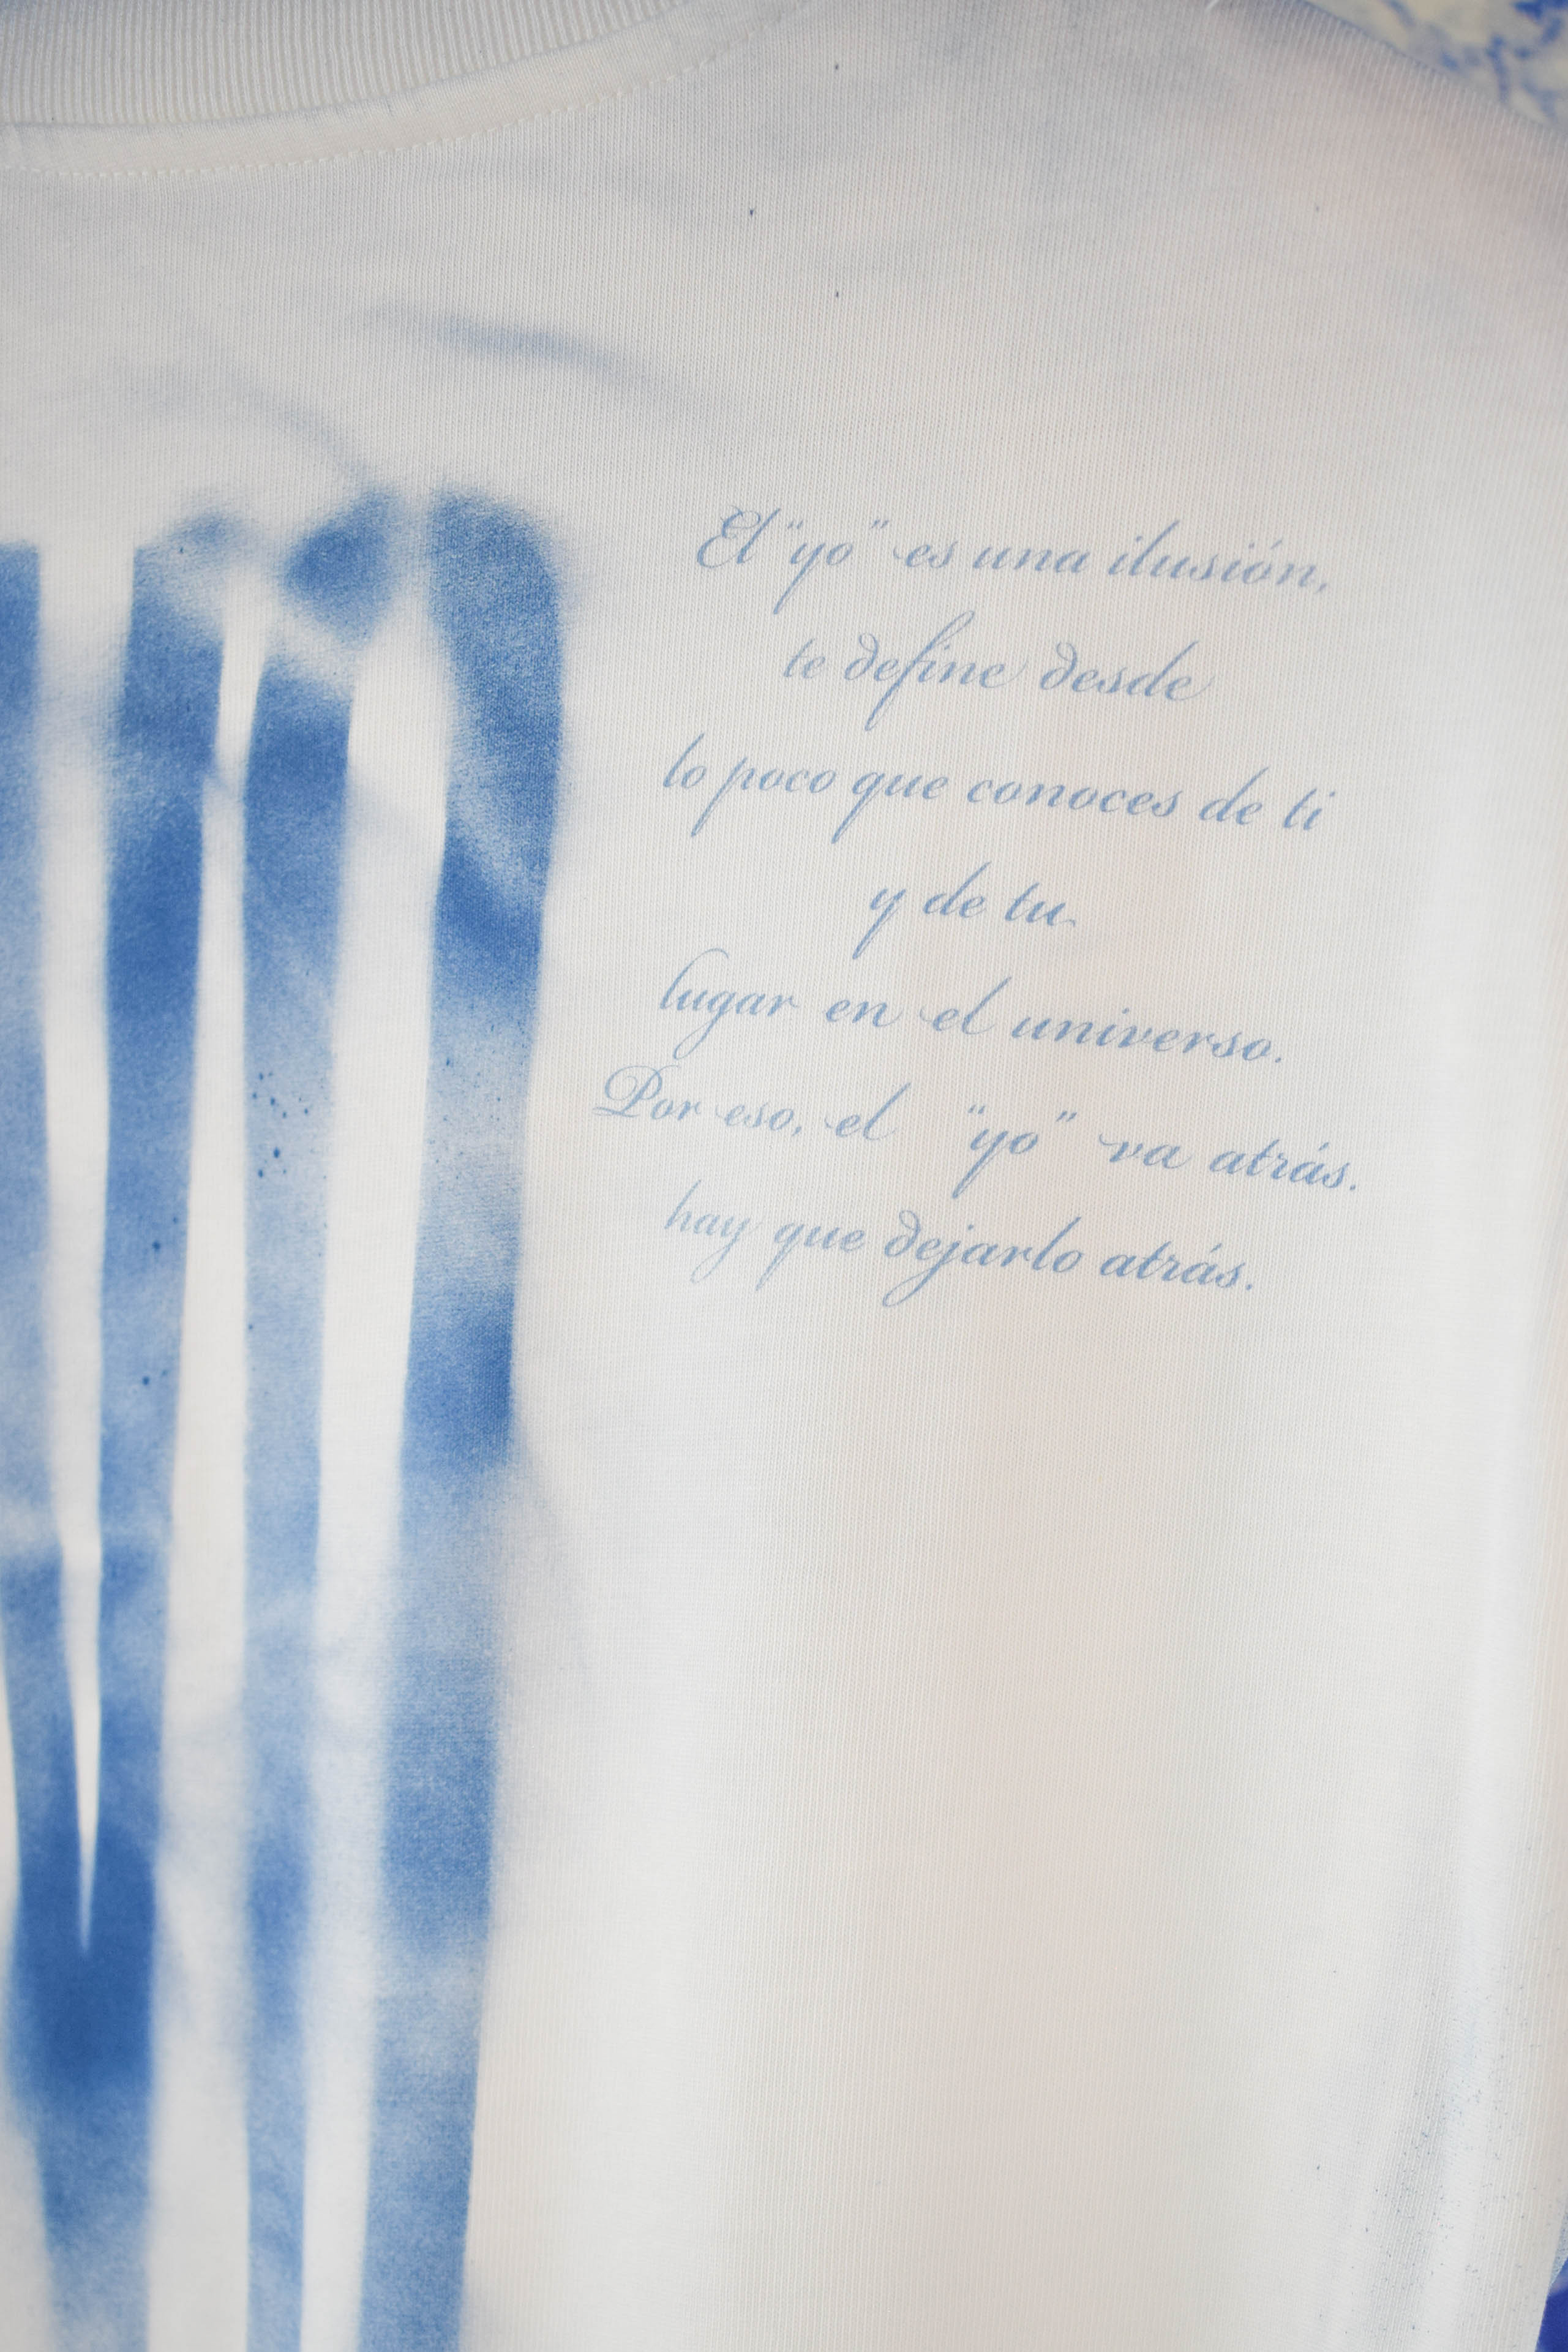 El "yo" es una ilusión,
te define desde
lo poco que conoces de ti
y de tu
lugar en el universo.
Por eso, el "yo" va atrás.
hay que dejarlo atrás.